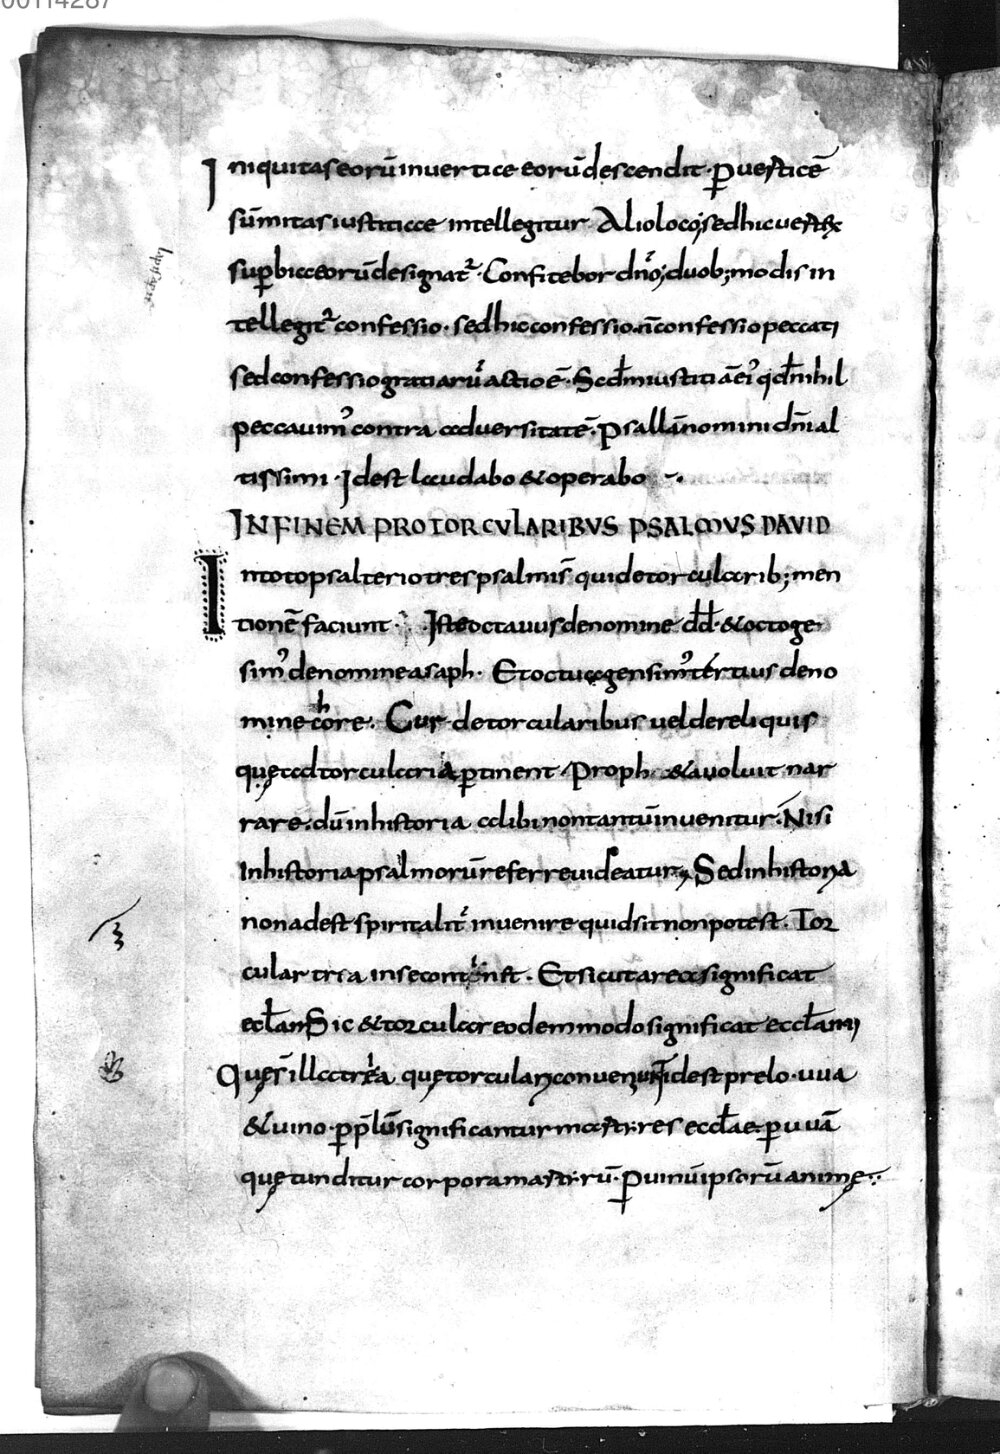 00114287
Iniquitas eorū in uertice eorū descendit · p uerticē
sūmitas iustitiae intellegitur · Alio loco; sed hic uertex
supbiae eorū designat · Confitebor dn̄o; duob; modis in
tellegit confessio · sed hic confessio n̄ confessio peccati
sed confessio gratiarū actio ē · Scdm iustitiā ei' qd nihil
peccauim' contra aduersitatē · Psallā nomini dn̄i al
tissimi · Idest laudabo & operabo
IN FINEM PRO TORCULARIBVS PSALMVS DAVID
In toto psalterio tres psalmi s̄ qui de torcularib; men
tionē faciunt · Iste octauus de nomine dd̄ · & octoge
sim' de nomine asaph · Et octuagensim' tertius de no
mine chore · Cur de torcularibus uel de reliquis
quę ad torcularia ptinent Proph& a uoluit nar
rare · dū in historia alibi non tantū inuenitur · Nisi
In historia psalmorū referre uideatur Sed in historia
non adest spiritalit inuenire quid sit non potest · Tor
cular tria in se cont · Et sicut area significat
eccłam Sic & torcular eodem modo significat eccłam
Quę s̄ illa tria quę torculari conueniunt idest prelo · uua
& uino · p p̄lū significantur mastires eccłae · p uuā
quę tunditur corpora mastirū · P uinū ipsorū animę